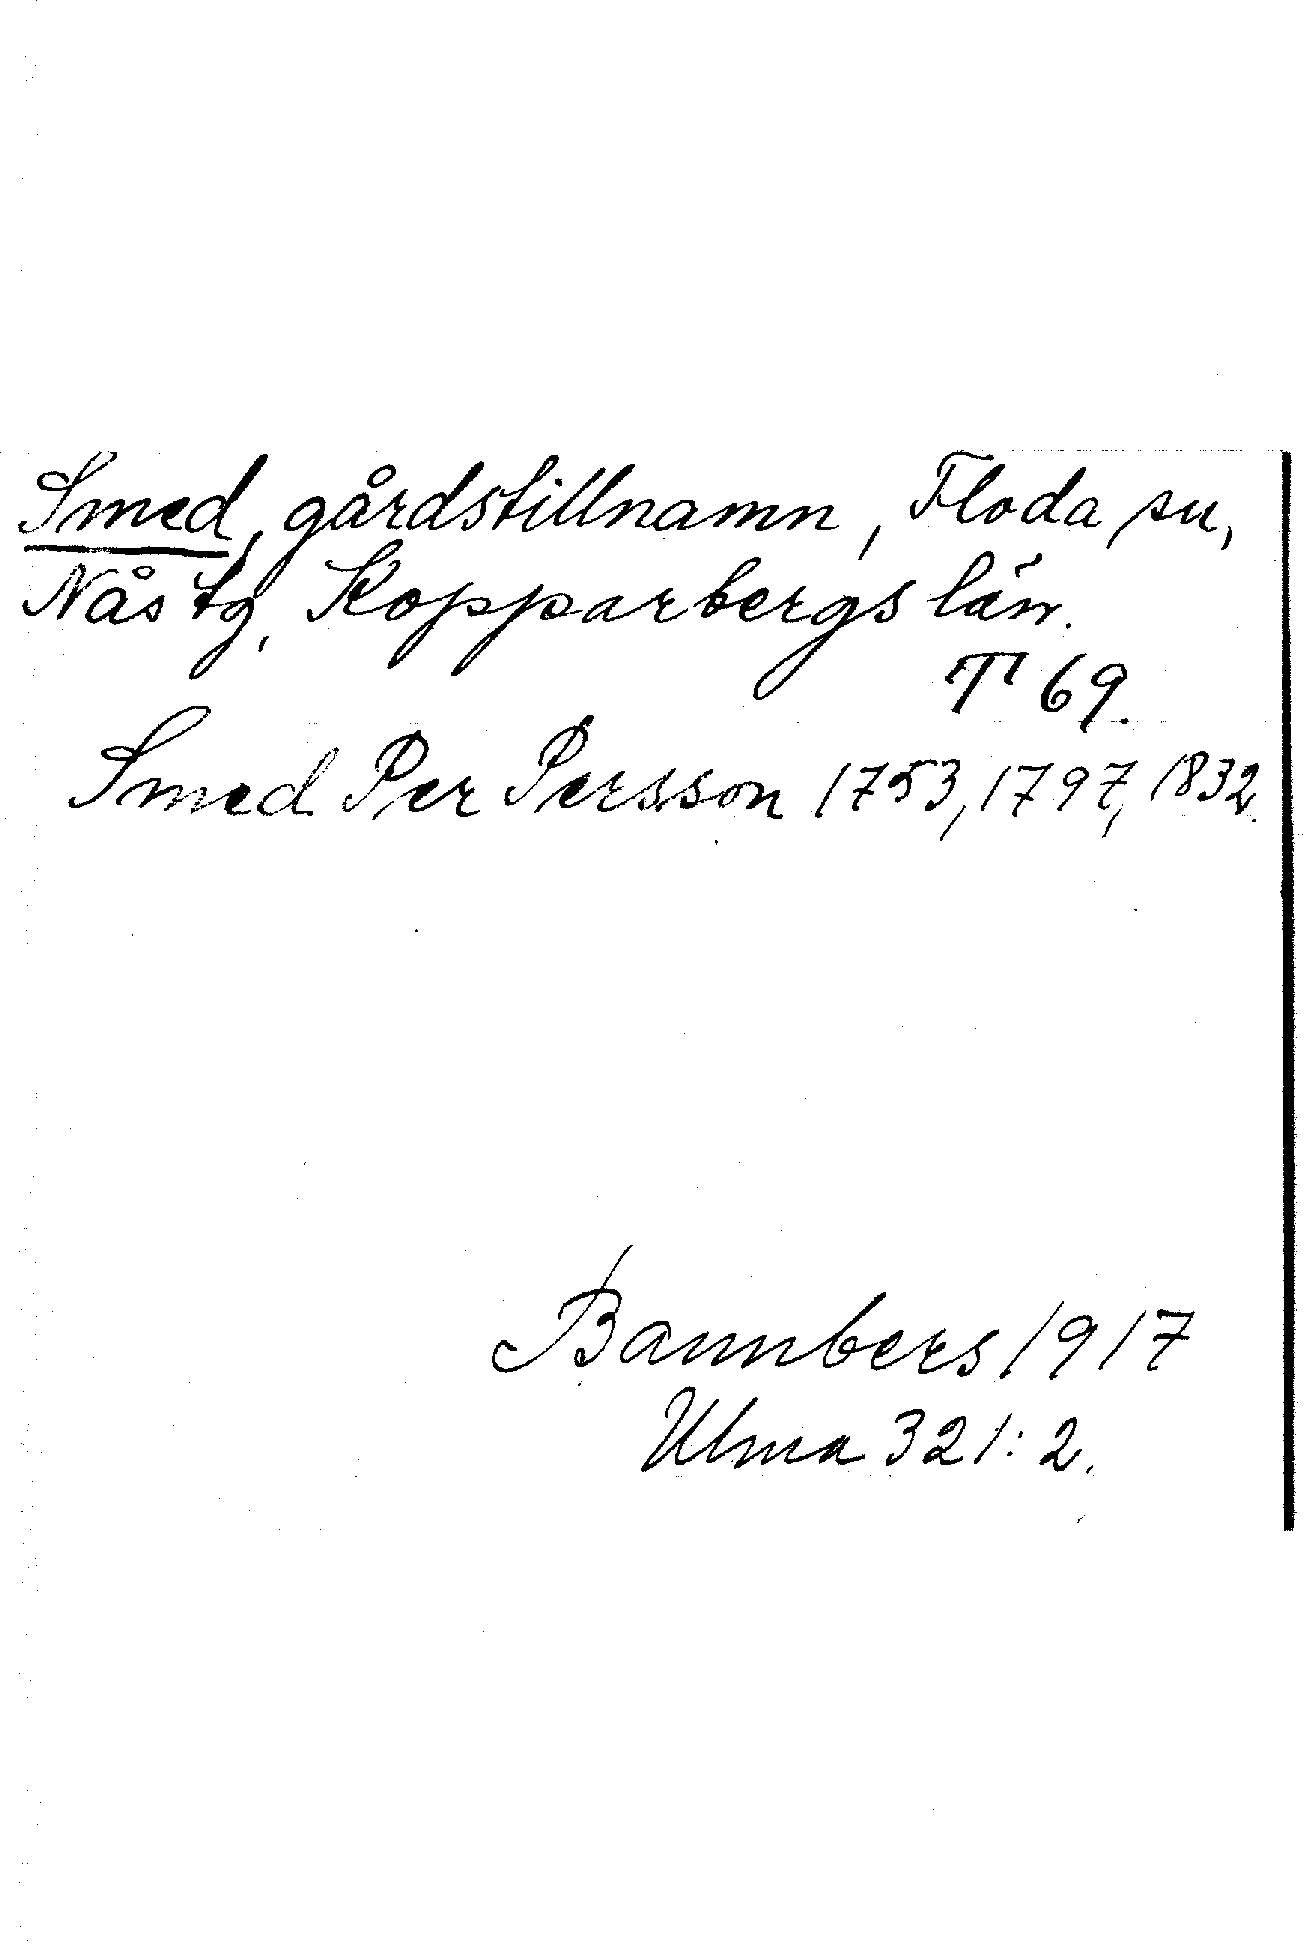 Smed, gårdstillnamn, Floda sn,
Nås tg, Kopparbergs län.
T 69.
Smed Per Persson 1753, 1797, 1832.
Bannbers 1917
Ulma 321:2.